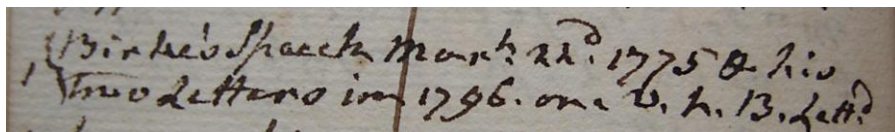 1 { Birke's Speech Marh. 22d. 1775 & his
two Letters in 1796. one V. h. B. Lettd